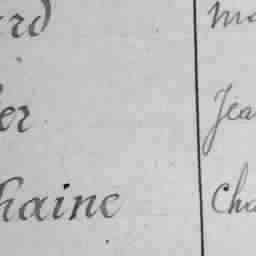 rd Ma
er Jea
haine Cha